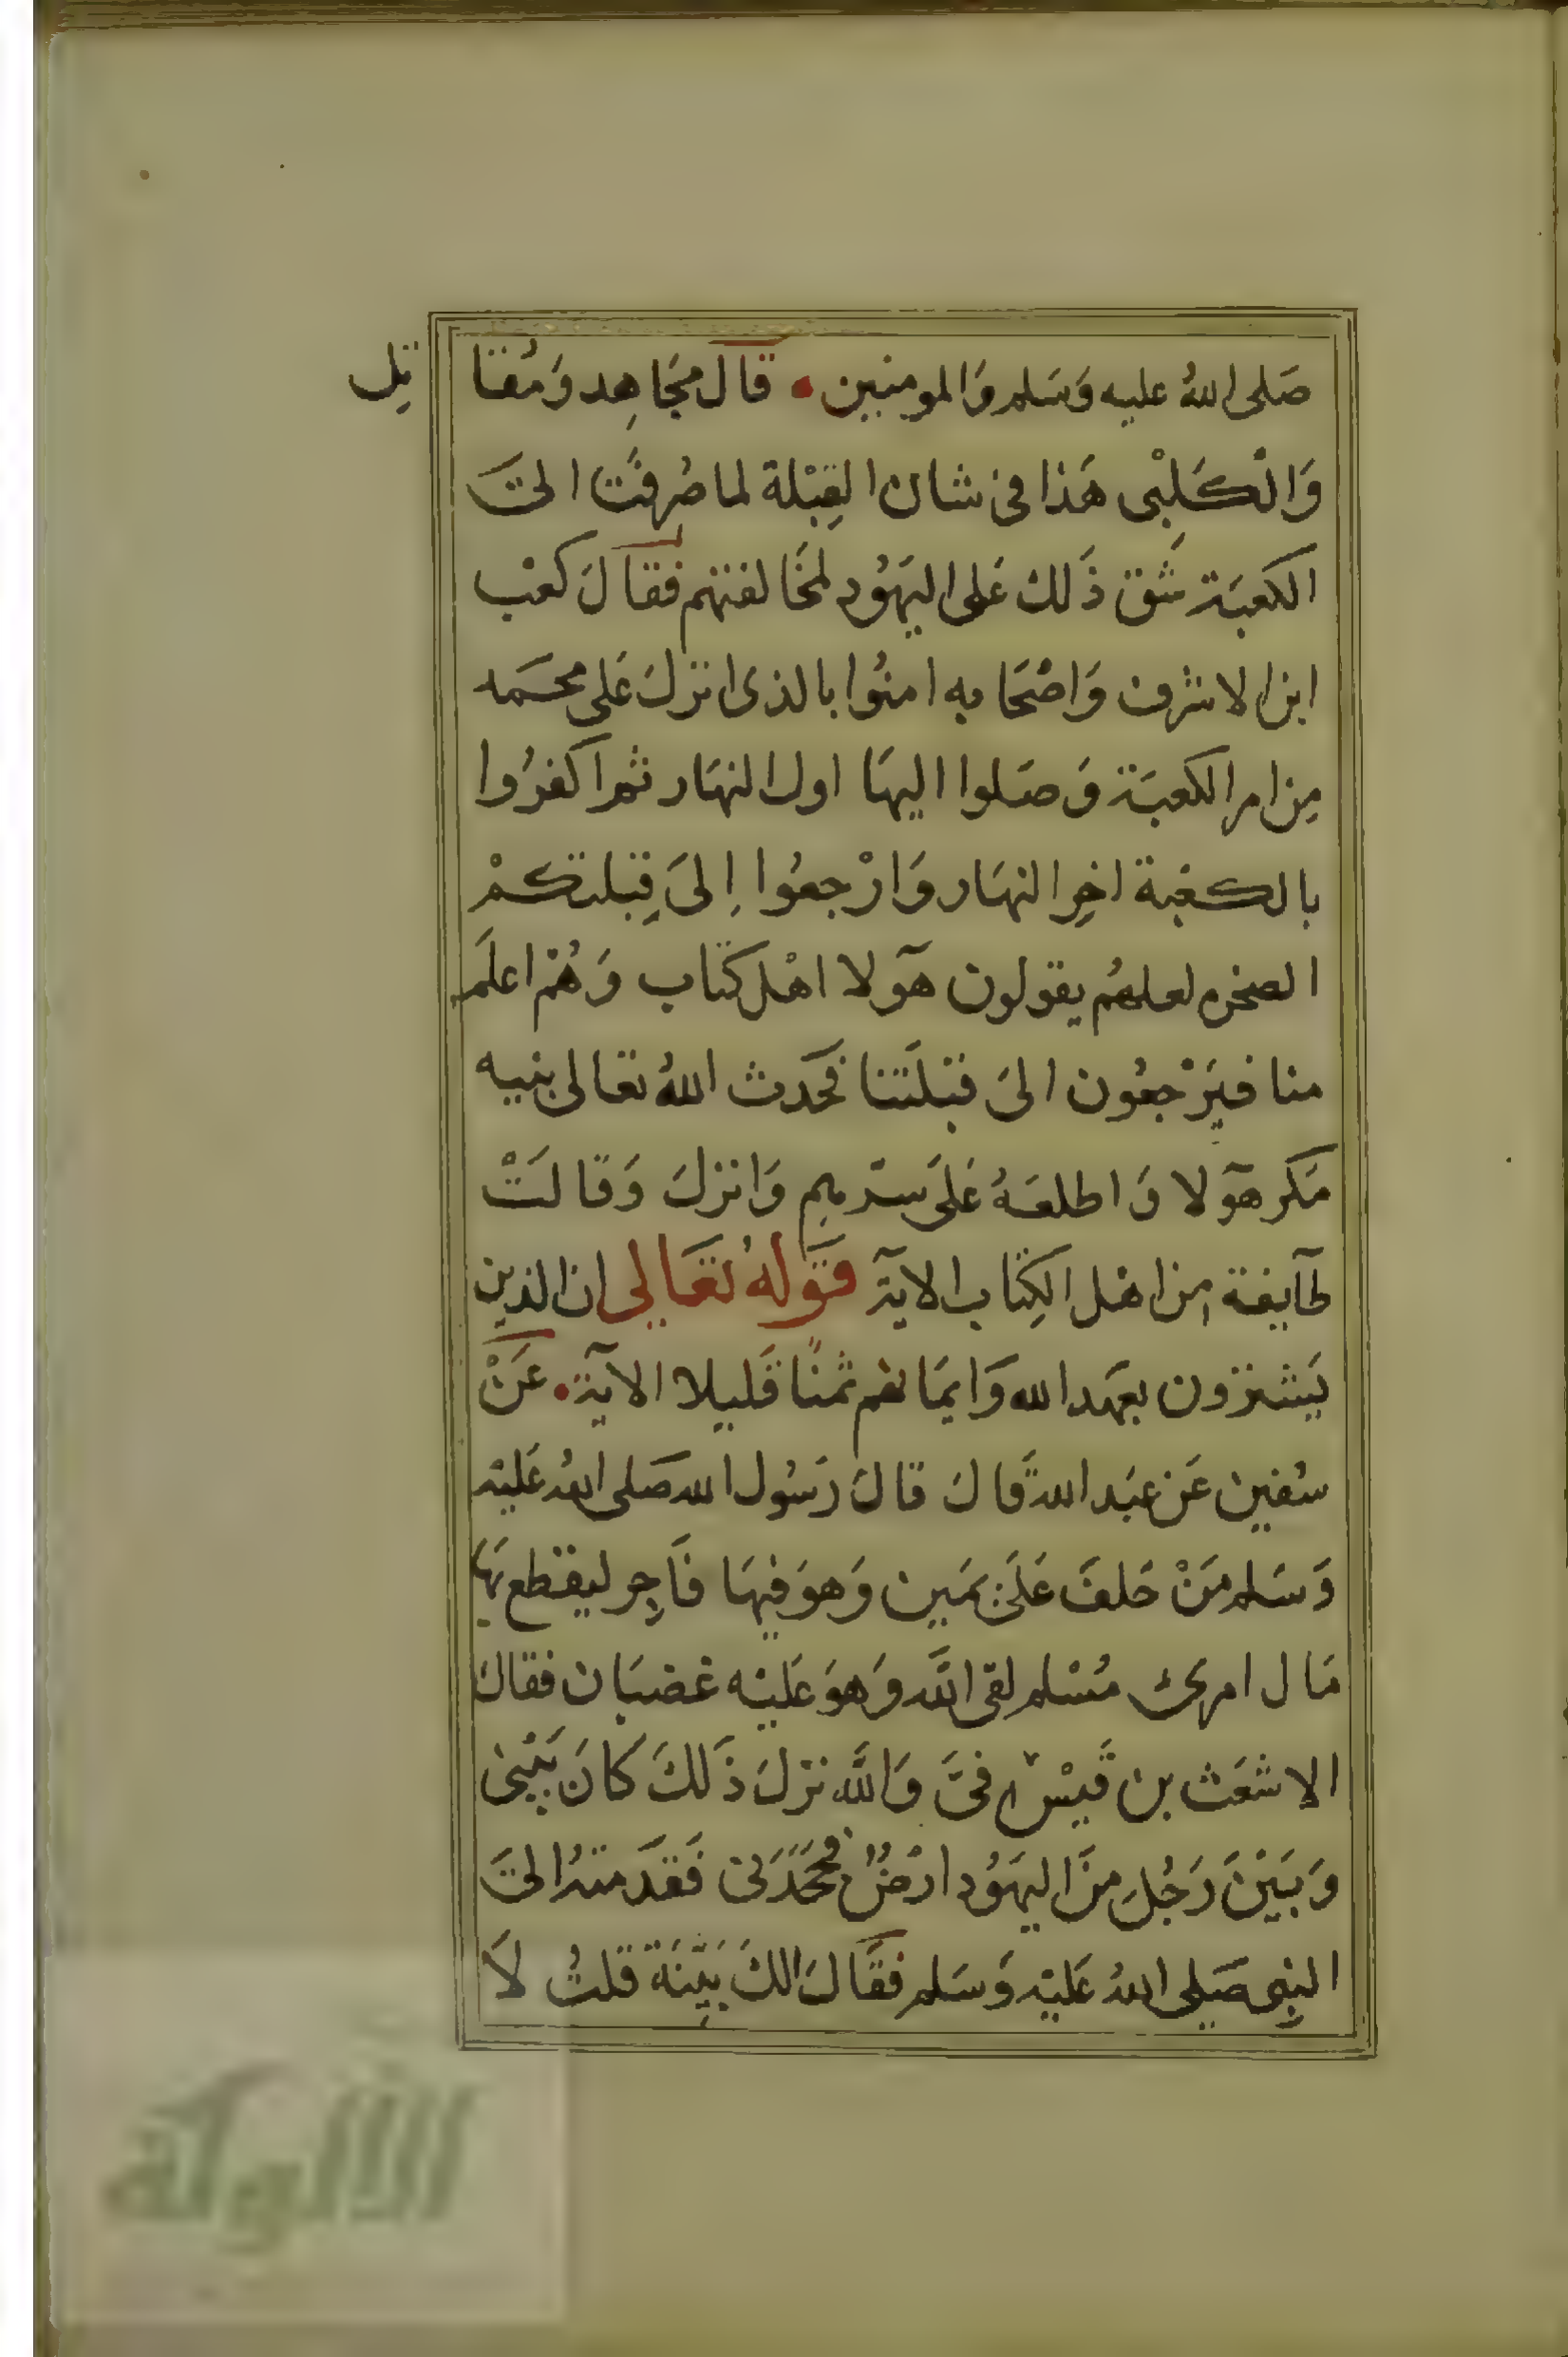 صَلى اللهُ عليه وَسَلم وَالمومنين • قال مجَاهِد وَمُقاتِل
وَالْكَلْبى هَذا فى شان القِبْلة لما صُرفَت الىَ
الكعبَة شَق ذَلك عَلى اليهَوُد لمخَالفتهم فقال كعْب
ابن الاشرف وَاصْحَابه امنوُا بالذى انزلَ عَلى محَمد
مِن امر الكعبَة وَصَلوا اليهَا اول النهَار ثم اكفرُوا
بالكعْبة اخِر النهَار وَارْجعوُا اِلىَ قِبلتكمْ
الصخره لعلهُم يقولون هَآولا اهْل كتاب وَهُمْ اعلَم
منا فيَرْجعُون الىَ قبْلَتنا فحَدث اللهُ تعالى نبيه
مَكر هَآولا وَاطلعَهُ عَلىَ سرّهِم وَانزلَ وَقالَتْ
طَآيفة مِن اهْل الكِتاب الاية قَوَلهُ تعَالى ان الذين
يَشترون بعهَد الله وَايمَانهم ثمنًا قَليلا الآية • عَنْ
سُفين عَن عَبد الله قَال قالَ رَسُول الله صَلى اللهُ عَليْه
وَسَلم مَنْ حَلفَ عَلىَ يمَين وَهوَ فيهَا فَاجِر ليقتطع بهَا
مَال امرئ مُسْلم لقى اللَّه وَهوَ عَليْه غضبَان فقالَ
الاشعَث بن قَيسْ فىَّ وَاللَّه نزلَ ذَلكَ كانَ بَيْنى
وَبَيْنَ رَجُلٍ منَ اليهَوُد ارْضٌ فجَحَدَنى فَقدَمتهُ الىَ
النبِى صَلى اللهُ عَليْه وَسَلم فقَالَ الكَ بَيِّنَة قلتُ لاَ
الألوكة